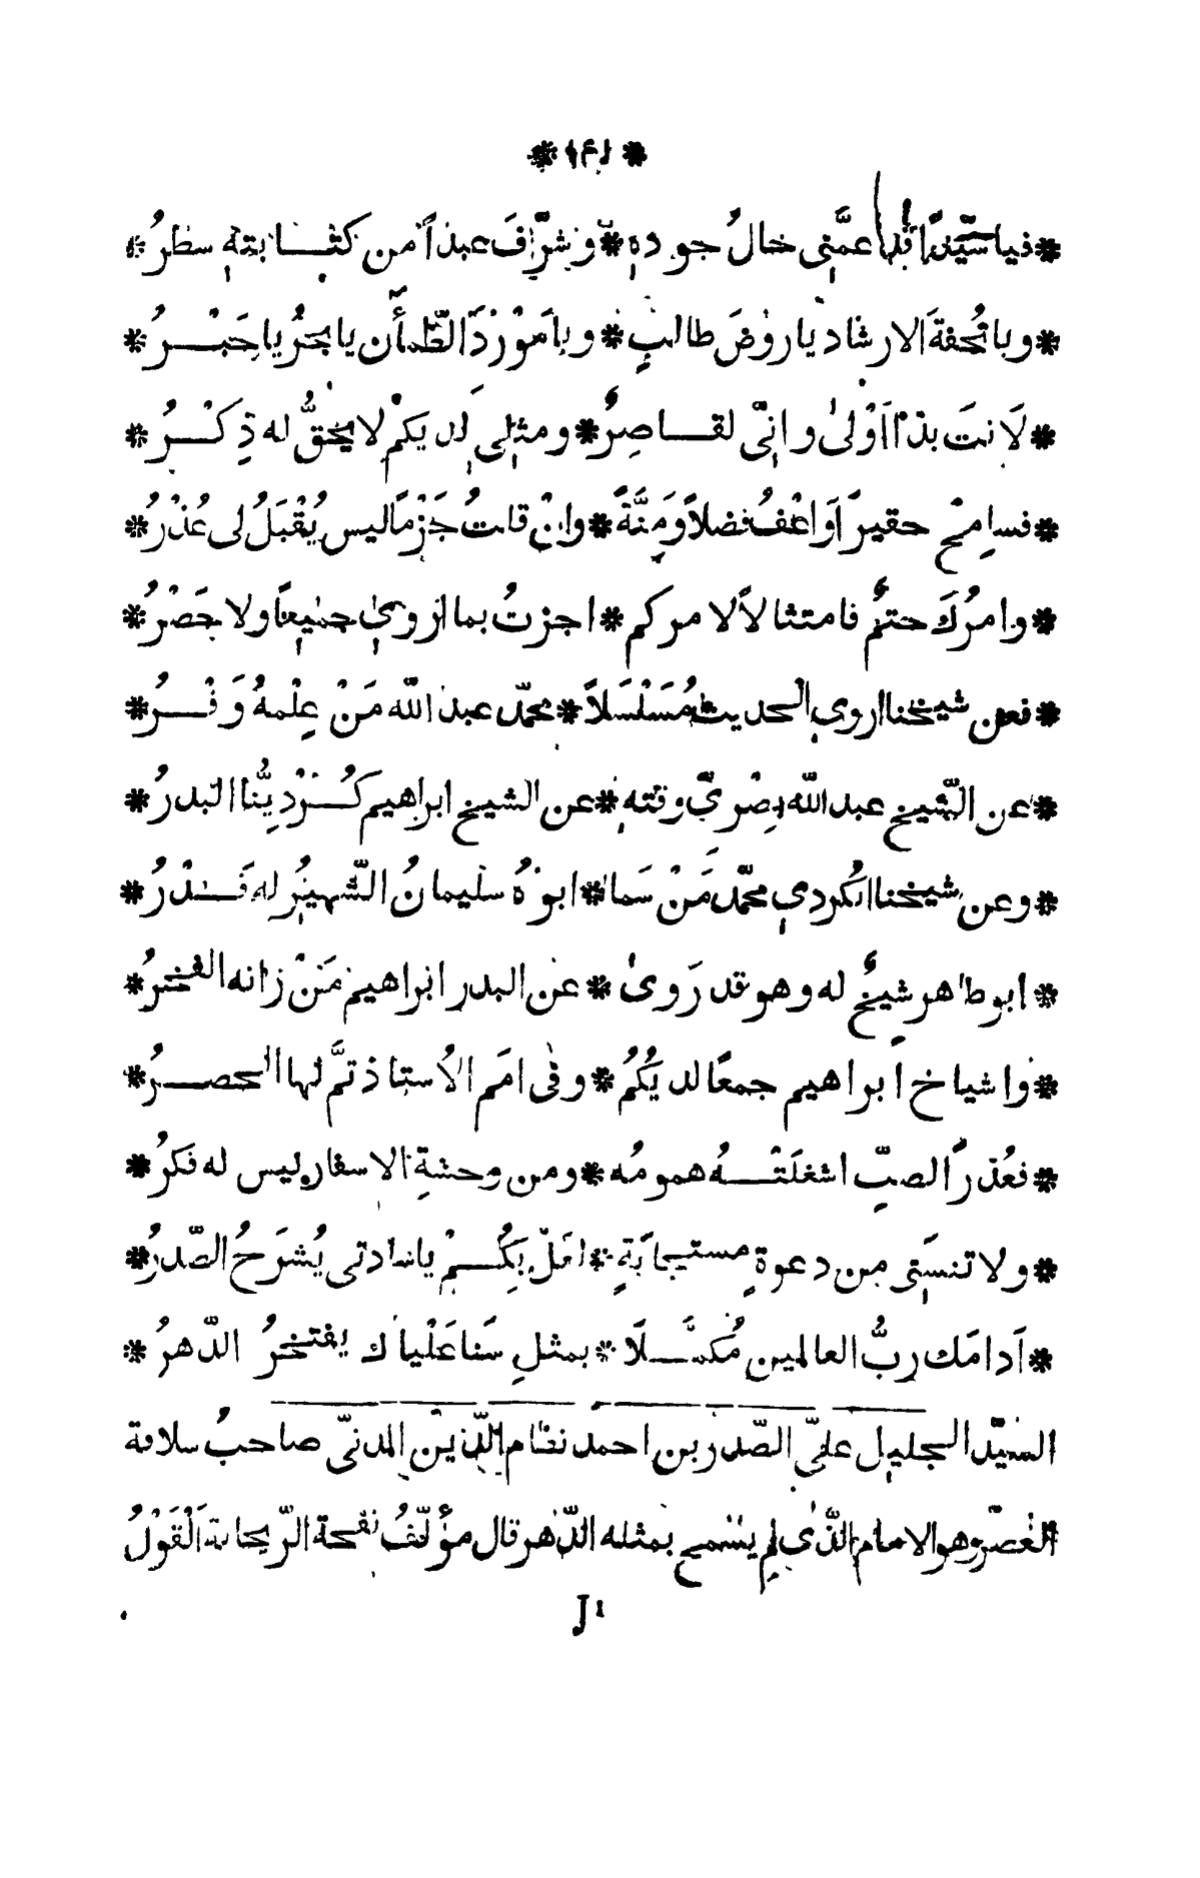 * ١٤١ *
* فيا سيّدًا قد عمّني خالُ جوده * وشرّفَ عبداً من كتابته سطرُ *
* ويا تُحفةَ الارشاد يا روضَ طالبٍ * ويا مَوْرِدَ الظّمأن يا بحرُ يا حَبْرُ *
* لَانتَ بذا اَوْلىٰ وانّى لقاصِرٌ * ومثلى لديكمْ لا يحقُّ له ذِكْرُ *
* فسامحْ حقيرًا وَاعْفُ فضلاً وَمِنَّةً * وانْ قلتُ جَزْمًا ليس يُقْبَلُ لى عُذْرُ *
* وامرُكَ حتمٌ فامتثالاً لامركم * اجزتُ بما اروي جميعًا ولا حَصْرُ *
* فعن شيخنا اروي الحديث مُسَلْسَلاً * محمّد عبد الله مَنْ عِلْمهُ وَفْرُ *
* عن الشّيخ عبد الله بصْريّ وقته * عن الشيخ ابراهيم كُرْدِيُّنا البدرُ *
* وعن شيخنا الكردي محمّد مَنْ سَما * ابوهُ سليمانُ الشّهيرُ له قَدْرُ *
* ابو طاهر شيخٌ له وهو قد رَوىٰ * عن البدر ابراهيم مَنْ زانه الفخرُ *
* واشياخ ابراهيم جمعًا لديكُمُ * وفى امَم الاُستاذ تمَّ لها الحصرُ *
* فعُذرًا لصبّ اشغلَتْهُ همومُه * ومن وحشةِ الاسفار ليس له فكرُ *
* ولا تنسَنى من دعوةٍ مستجابَةٍ * لعَلّ بِكُمْ يا سادتى يُشرَحُ الصّدرُ *
* اَدامَك ربُّ العالمين مُكمَّلًا * بمثلِ سَنا عَلْياك يفتخرُ الدّهرُ *
السّيّد الجليل علىّ الصّدر بن احمد نظام الدّين المدنىّ صاحبُ سلافة
العصر وهو الامام الّذى لم يسمح بمثله الدّهر قال مؤلّفُ نفحة الرّيحانة اَلْقَوْلُ